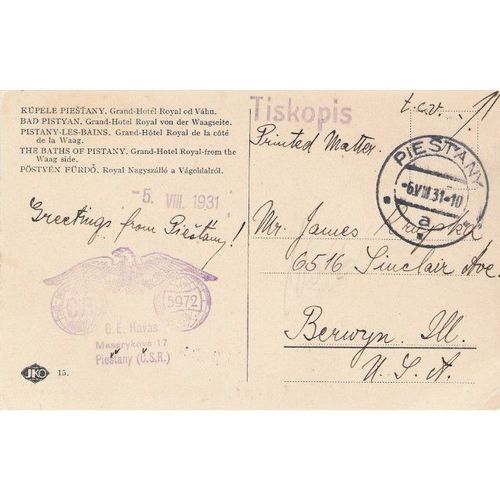 KÚPELE PIEŠŤANY. Grand-Hotel Royal od Váhu.
BAD PISTYAN. Grand-Hotel Royal von der Waagseite.
PISTANY-LES-BAINS. Grand-Hôtel Royal de la côté
de la Waag.
THE BATHS OF PISTANY. Grand-Hotel Royal-from the
Waag side.
PÖSTYÉN FÜRDŐ. Royal Nagyszálló a Vágoldalról.
-5. VIII. 1931
Greetings from Piešťany!
5972
G. E. Havas
Masarykova 17
Piešťany (Č.S.R.)
JKO 15.
Tiskopis
t.c.v.
Printed Matter.
PIEŠŤANY
-6.VIII.31-10
a
Mr. James
6516 Sinclair Ave.
Berwyn, Ill.
U. S. A.